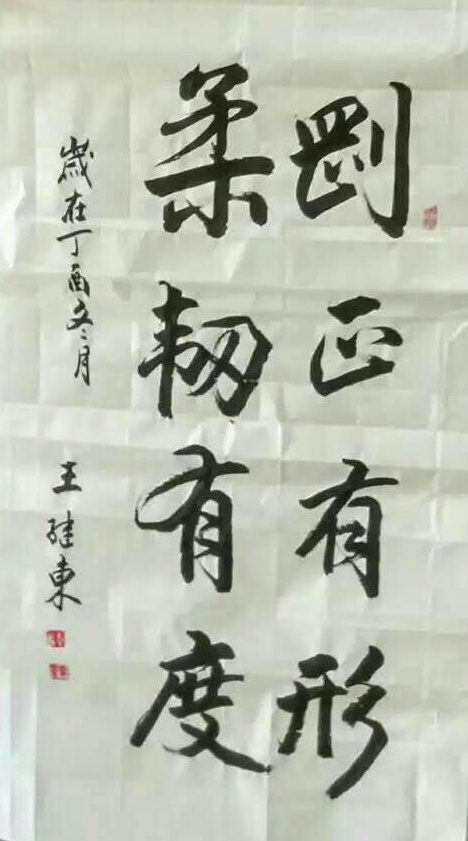 剛正有形
柔韧有度
歲在丁酉冬月
王继東